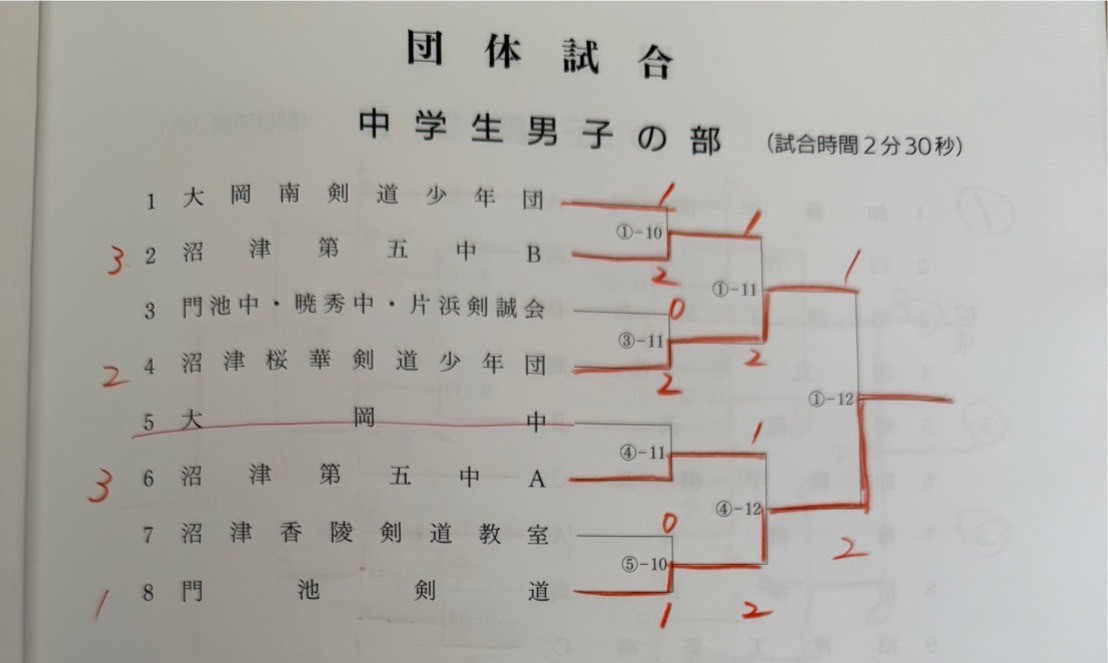 団体試合
中学生男子の部 (試合時間2分30秒)
1 大岡南剣道少年団 1
①-10 1
3 2 沼津第五中B 2
①-11 1
3 門池中・暁秀中・片浜剣誠会 0
③-11 2
2 4 沼津桜華剣道少年団 2
①-12
5 大岡中
④-11 1
3 6 沼津第五中A
④-12 2
7 沼津香陵剣道教室 0
⑤-10 2
1 8 門池剣道 1